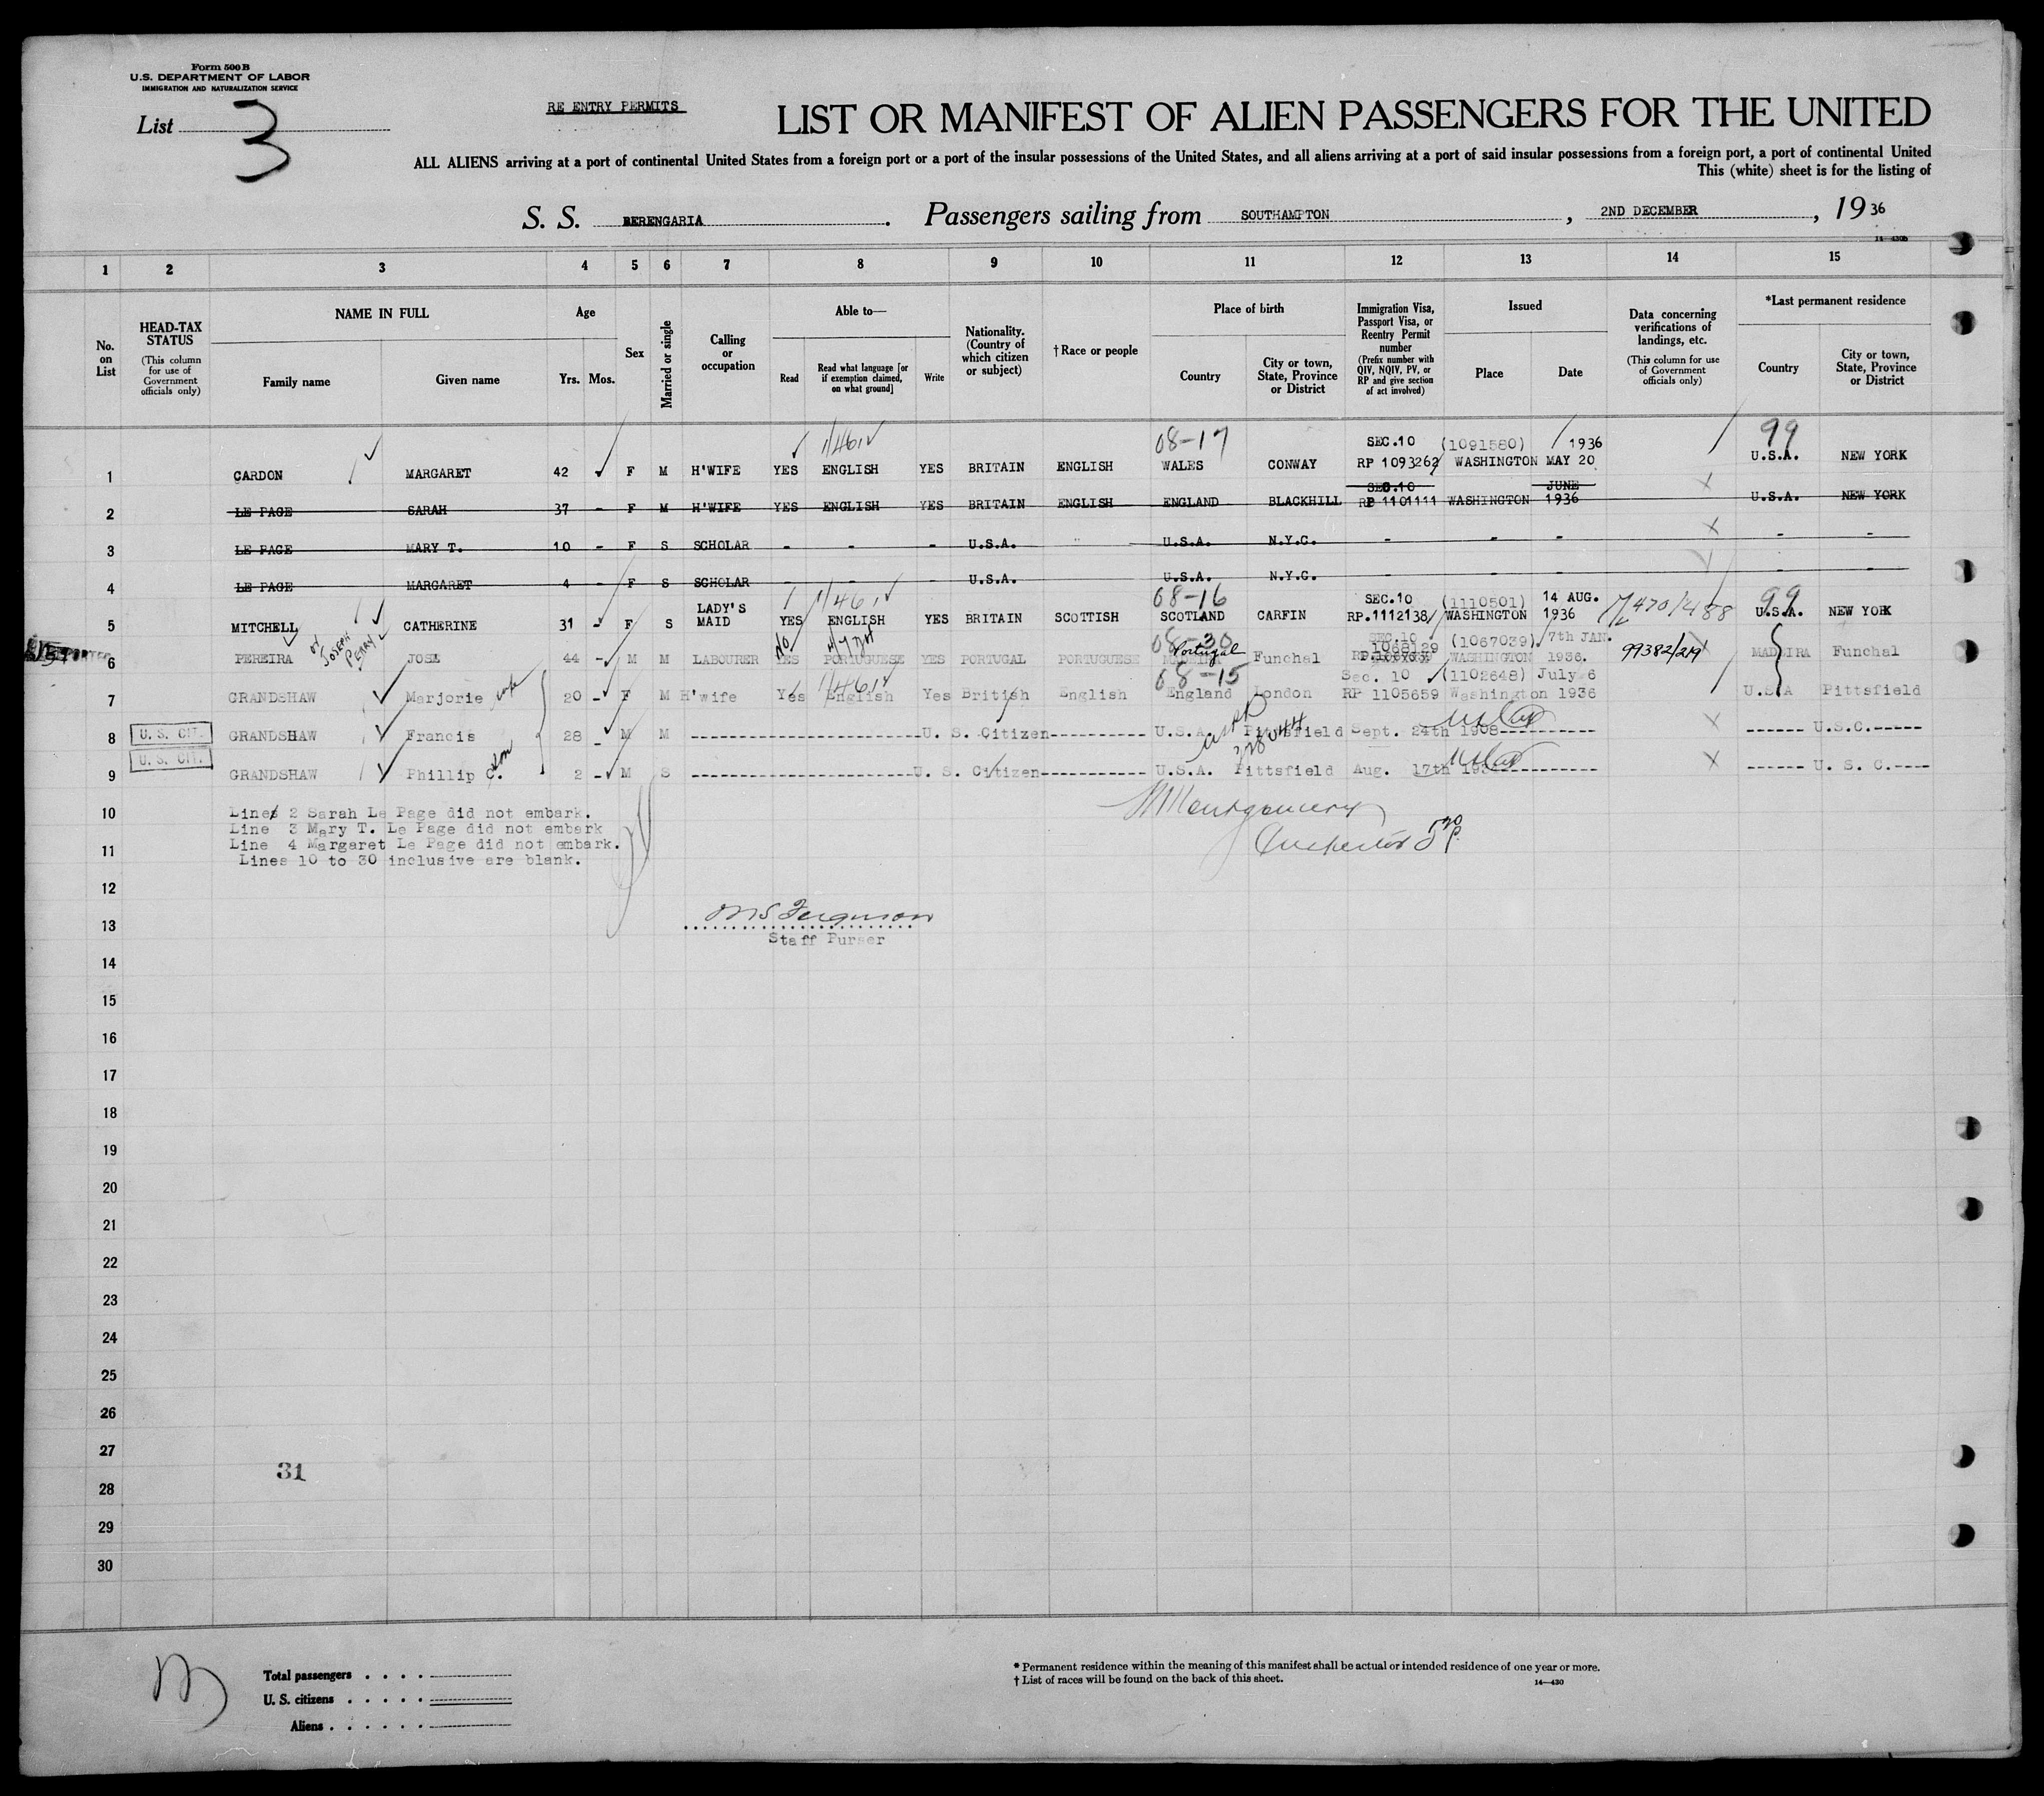 Form 500 B
U.S. DEPARTMENT OF LABOR
IMMIGRATION AND NATURALIZATION SERVICE
List 3
RE ENTRY PERMITS
LIST OR MANIFEST OF ALIEN PASSENGERS FOR THE UNITED
ALL ALIENS arriving at a port of continental United States from a foreign port or a port of the insular possessions of the United States, and all aliens arriving at a port of said insular possessions from a foreign port, a port of continental United
This (white) sheet is for the listing of
S. S. BERENGARIA. Passengers sailing from SOUTHAMPTON, 2ND DECEMBER, 1936
14—430B
1 2 3 4 5 6 7 8 9 10 11 12 13 14 15
No. on List
HEAD-TAX STATUS
(This column for use of Government officials only)
NAME IN FULL
Family name
Given name
Age
Yrs. Mos.
Sex
Married or single
Calling or occupation
Able to—
Read
Read what language [or if exemption claimed, on what ground]
Write
Nationality. (Country of which citizen or subject)
† Race or people
Place of birth
Country
City or town, State, Province or District
Immigration Visa, Passport Visa, or Reentry Permit number
(Prefix number with QIV, NQIV, PV, or RP and give section of act involved)
Issued
Place
Date
Data concerning verifications of landings, etc.
(This column for use of Government officials only)
*Last permanent residence
Country
City or town, State, Province or District
1/461 08-17 SEC.10 (1091580) 1936 99
1 CARDON MARGARET 42 F M H'WIFE YES ENGLISH YES BRITAIN ENGLISH WALES CONWAY RP 1093262 WASHINGTON MAY 20 U.S.A. NEW YORK
SEC.10 JUNE
2 LE PAGE SARAH 37 - F M H'WIFE YES ENGLISH YES BRITAIN ENGLISH ENGLAND BLACKHILL RP 1101111 WASHINGTON 1936 U.S.A. NEW YORK
3 LE PAGE MARY T. 10 - F S SCHOLAR - - - U.S.A. " U.S.A. N.Y.C. - - - - -
4 LE PAGE MARGARET 4 - F S SCHOLAR - - - U.S.A. U.S.A. N.Y.C. - - - - -
LADY'S 1/461 08-16 SEC.10 (1110501) 14 AUG. 99
5 MITCHELL CATHERINE 31 - F S MAID YES ENGLISH YES BRITAIN SCOTTISH SCOTLAND CARFIN RP.1112138 WASHINGTON 1936 U.S.A. NEW YORK
or JOSEPH PERRY No 08-30 Portugal SEC.10 1068129 (1067039). 7th JAN.
6 PEREIRA JOSE 44 - M M LABOURER YES PORTUGUESE YES PORTUGAL PORTUGUESE MADEIRA Funchal WASHINGTON 1936. 99382/219 MADEIRA Funchal
1/461 08-15 Sec. 10 (1102648) July 6
7 GRANDSHAW Marjorie wife 20 - F M H'wife Yes English Yes British English England London RP 1105659 Washington 1936 U.S.A Pittsfield
8 U. S. CIT. GRANDSHAW Francis 28 - M M U. S. Citizen U.S.A. Pittsfield Sept. 24th 1908 U.S.C.
9 U. S. CIT. GRANDSHAW Phillip C. son 2 - M S U. S. Citizen U.S.A. Pittsfield Aug. 17th 1934 U. S. C.
10 Lines 2 Sarah Le Page did not embark.
Line 3 Mary T. Le Page did not embark
11 Line 4 Margaret Le Page did not embark.
Lines 10 to 30 inclusive are blank.
Montgomery
Inspector
12
13 Ferguson
Staff Purser
14
15
16
17
18
19
20
21
22
23
24
25
26
27
31
28
29
30
Total passengers . . . .
U. S. citizens . . . . .
Aliens . . . . . .
* Permanent residence within the meaning of this manifest shall be actual or intended residence of one year or more.
† List of races will be found on the back of this sheet.
14—430